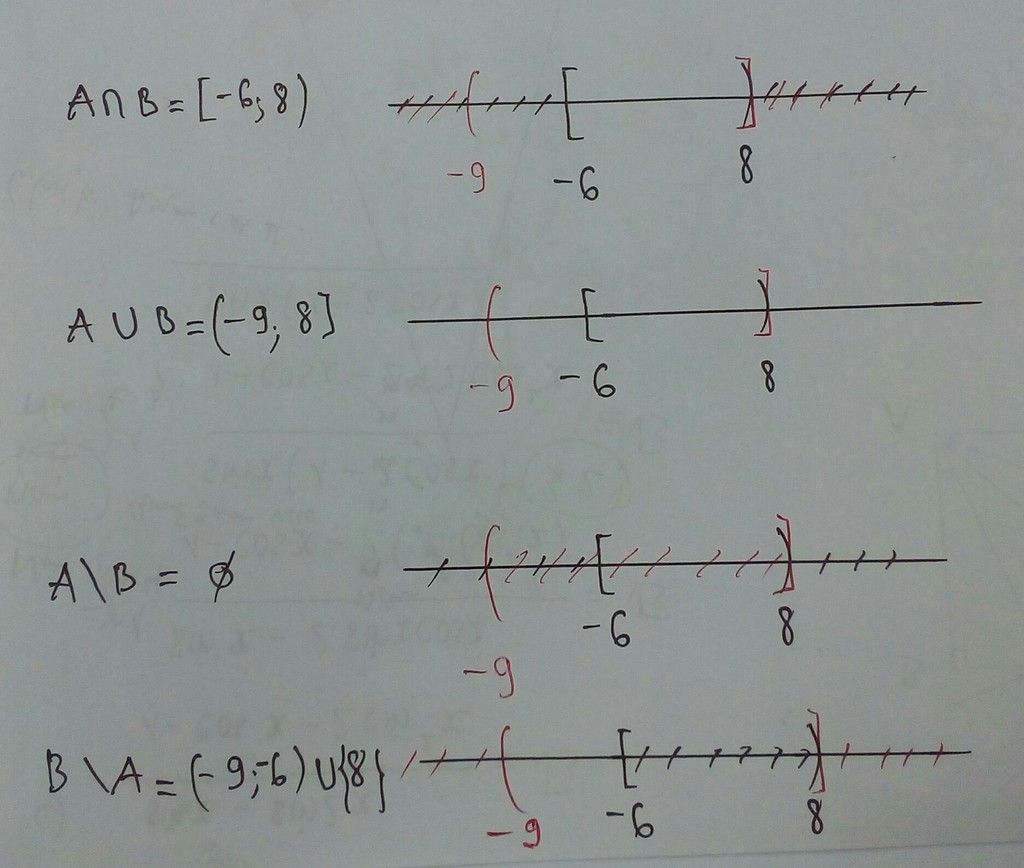 A∩B=[-6;8)
-9 -6 8
A∪B=(-9;8]
-9 -6 8
A\B=∅
-6 8
-9
B\A=(-9;-6)∪{8}
-9 -6 8